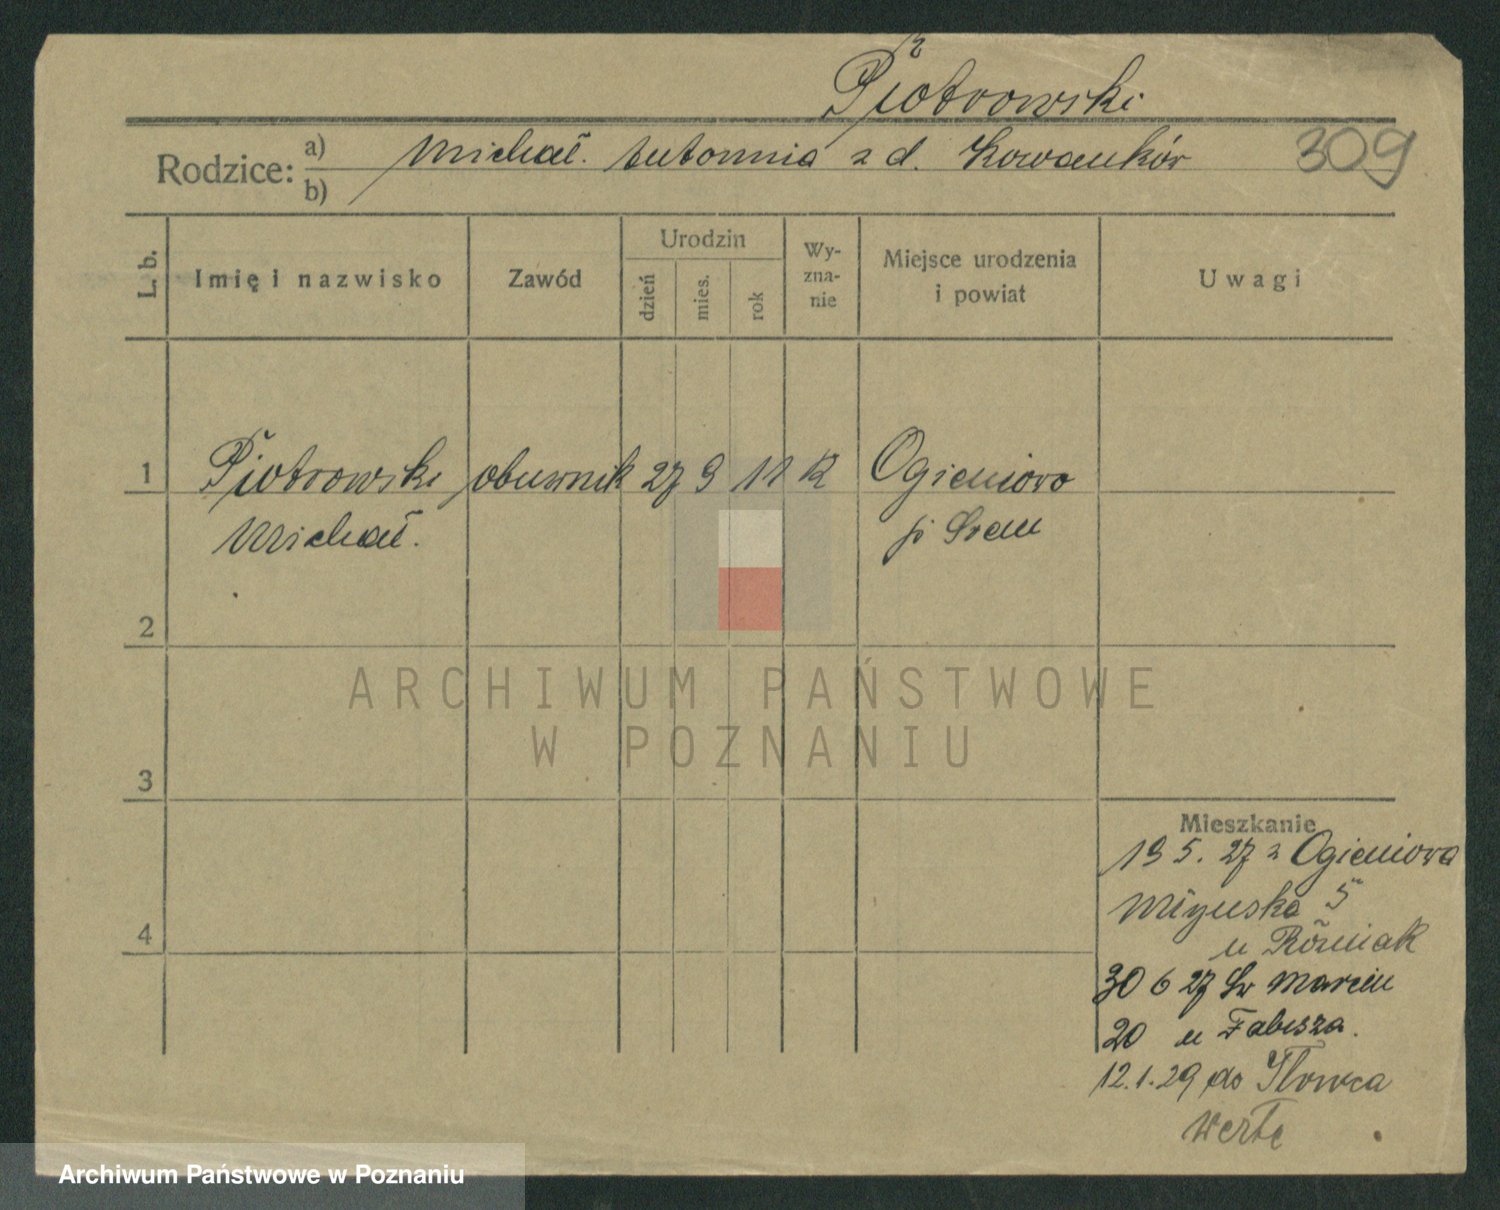 Piotrowski
Rodzice: a) Michał. Antonnia z d. Kowanków 309
b)
L. b.
Imię i nazwisko
Zawód
Urodzin
dzień
mies.
rok
Wy-
zna-
nie
Miejsce urodzenia
i powiat
Uwagi
1 Piotrowski obuwnik 27 9 11 K Ogieniowo
Michał. p. Srem
2
3
4
Mieszkanie
19 5. 27 z Ogieniowa
5
u
30 6 27 Sw Marcin
20 u Fabisza.
12.1.29 do Iłowca
Werte
ARCHIWUM PAŃSTWOWE
W POZNANIU
Archiwum Państwowe w Poznaniu